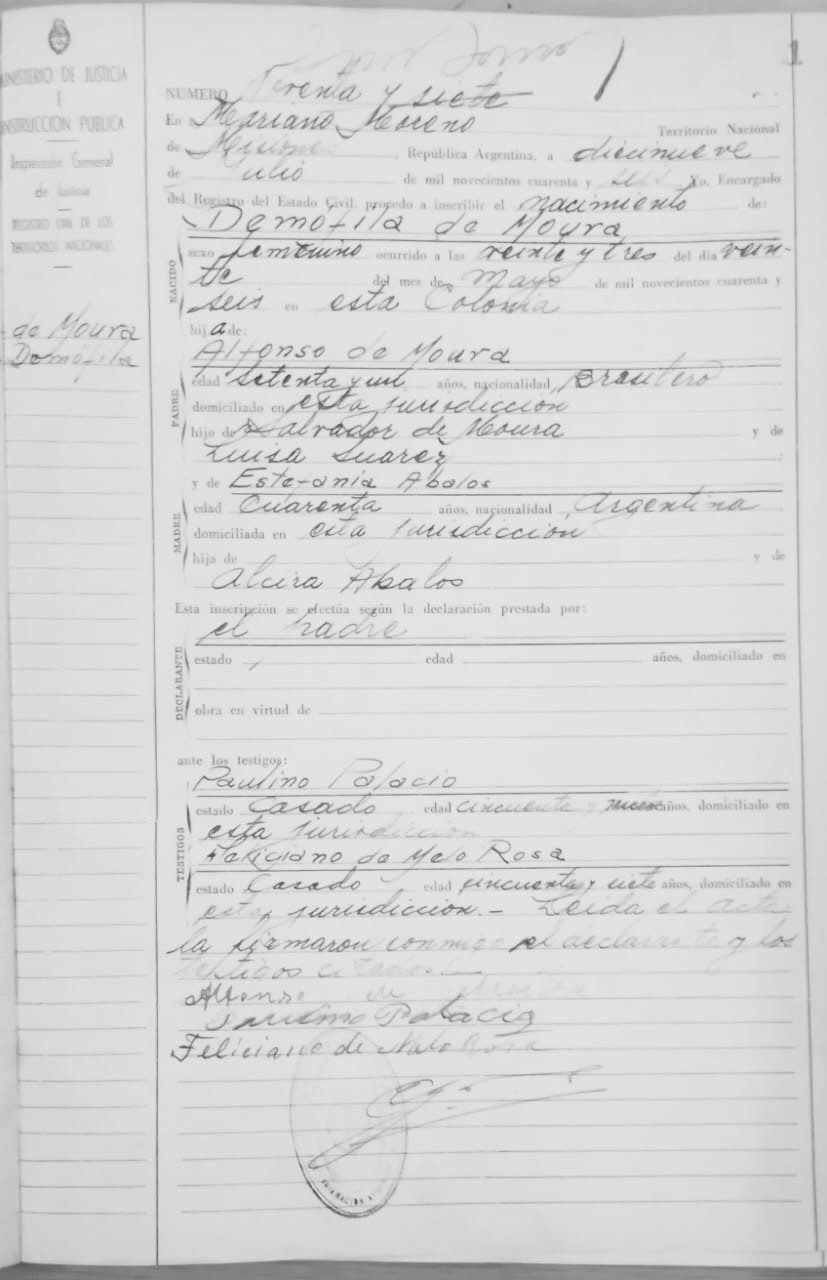 MINISTERIO DE JUSTICIA
E
INSTRUCCION PUBLICA
Inspección General
de Justicia
REGISTRO CIVIL DE LOS
TERRITORIOS NACIONALES
de Moura
Domofila
1
NUMERO Trenta y siete
En a Mariano Moreno Territorio Nacional
de Misiones, República Argentina, a diecinueve
de Julio de mil novecientos cuarenta y seis Yo. Encargado
del Registro del Estado Civil, procedo a inscribir el nacimiento de:
NACIDO
Demofila de Moura
sexo femenino ocurrido a las veinte y tres del día vein-
te del mes de Mayo de mil novecientos cuarenta y
seis en esta Colonia
hija de:
PADRE
Alfonso de Moura
edad setenta y un años, nacionalidad Brasilero
domiciliado en esta jurisdicción
hijo de Salvador de Moura y de
Luisa Suarez
MADRE
y de Estefania Abalos
edad Cuarenta años, nacionalidad Argentina
domiciliada en esta jurisdicción
hija de y de
Alcira Abalos
Esta inscripción se efectúa según la declaración prestada por:
DECLARANTE
el padre
estado edad años, domiciliado en
obra en virtud de
ante los testigos:
TESTIGOS
Paulino Palacio
estado Casado edad cincuenta y años, domiciliado en
esta jurisdicción
Feliciano de Melo Rosa
estado Casado edad cincuenta y siete años, domiciliado en
esta jurisdicción.- Leida el acta
la firmaron conmigo el declarante y los
testigos citados
Alfonso
Paulino Palacio
Feliciano de Malo Rosa